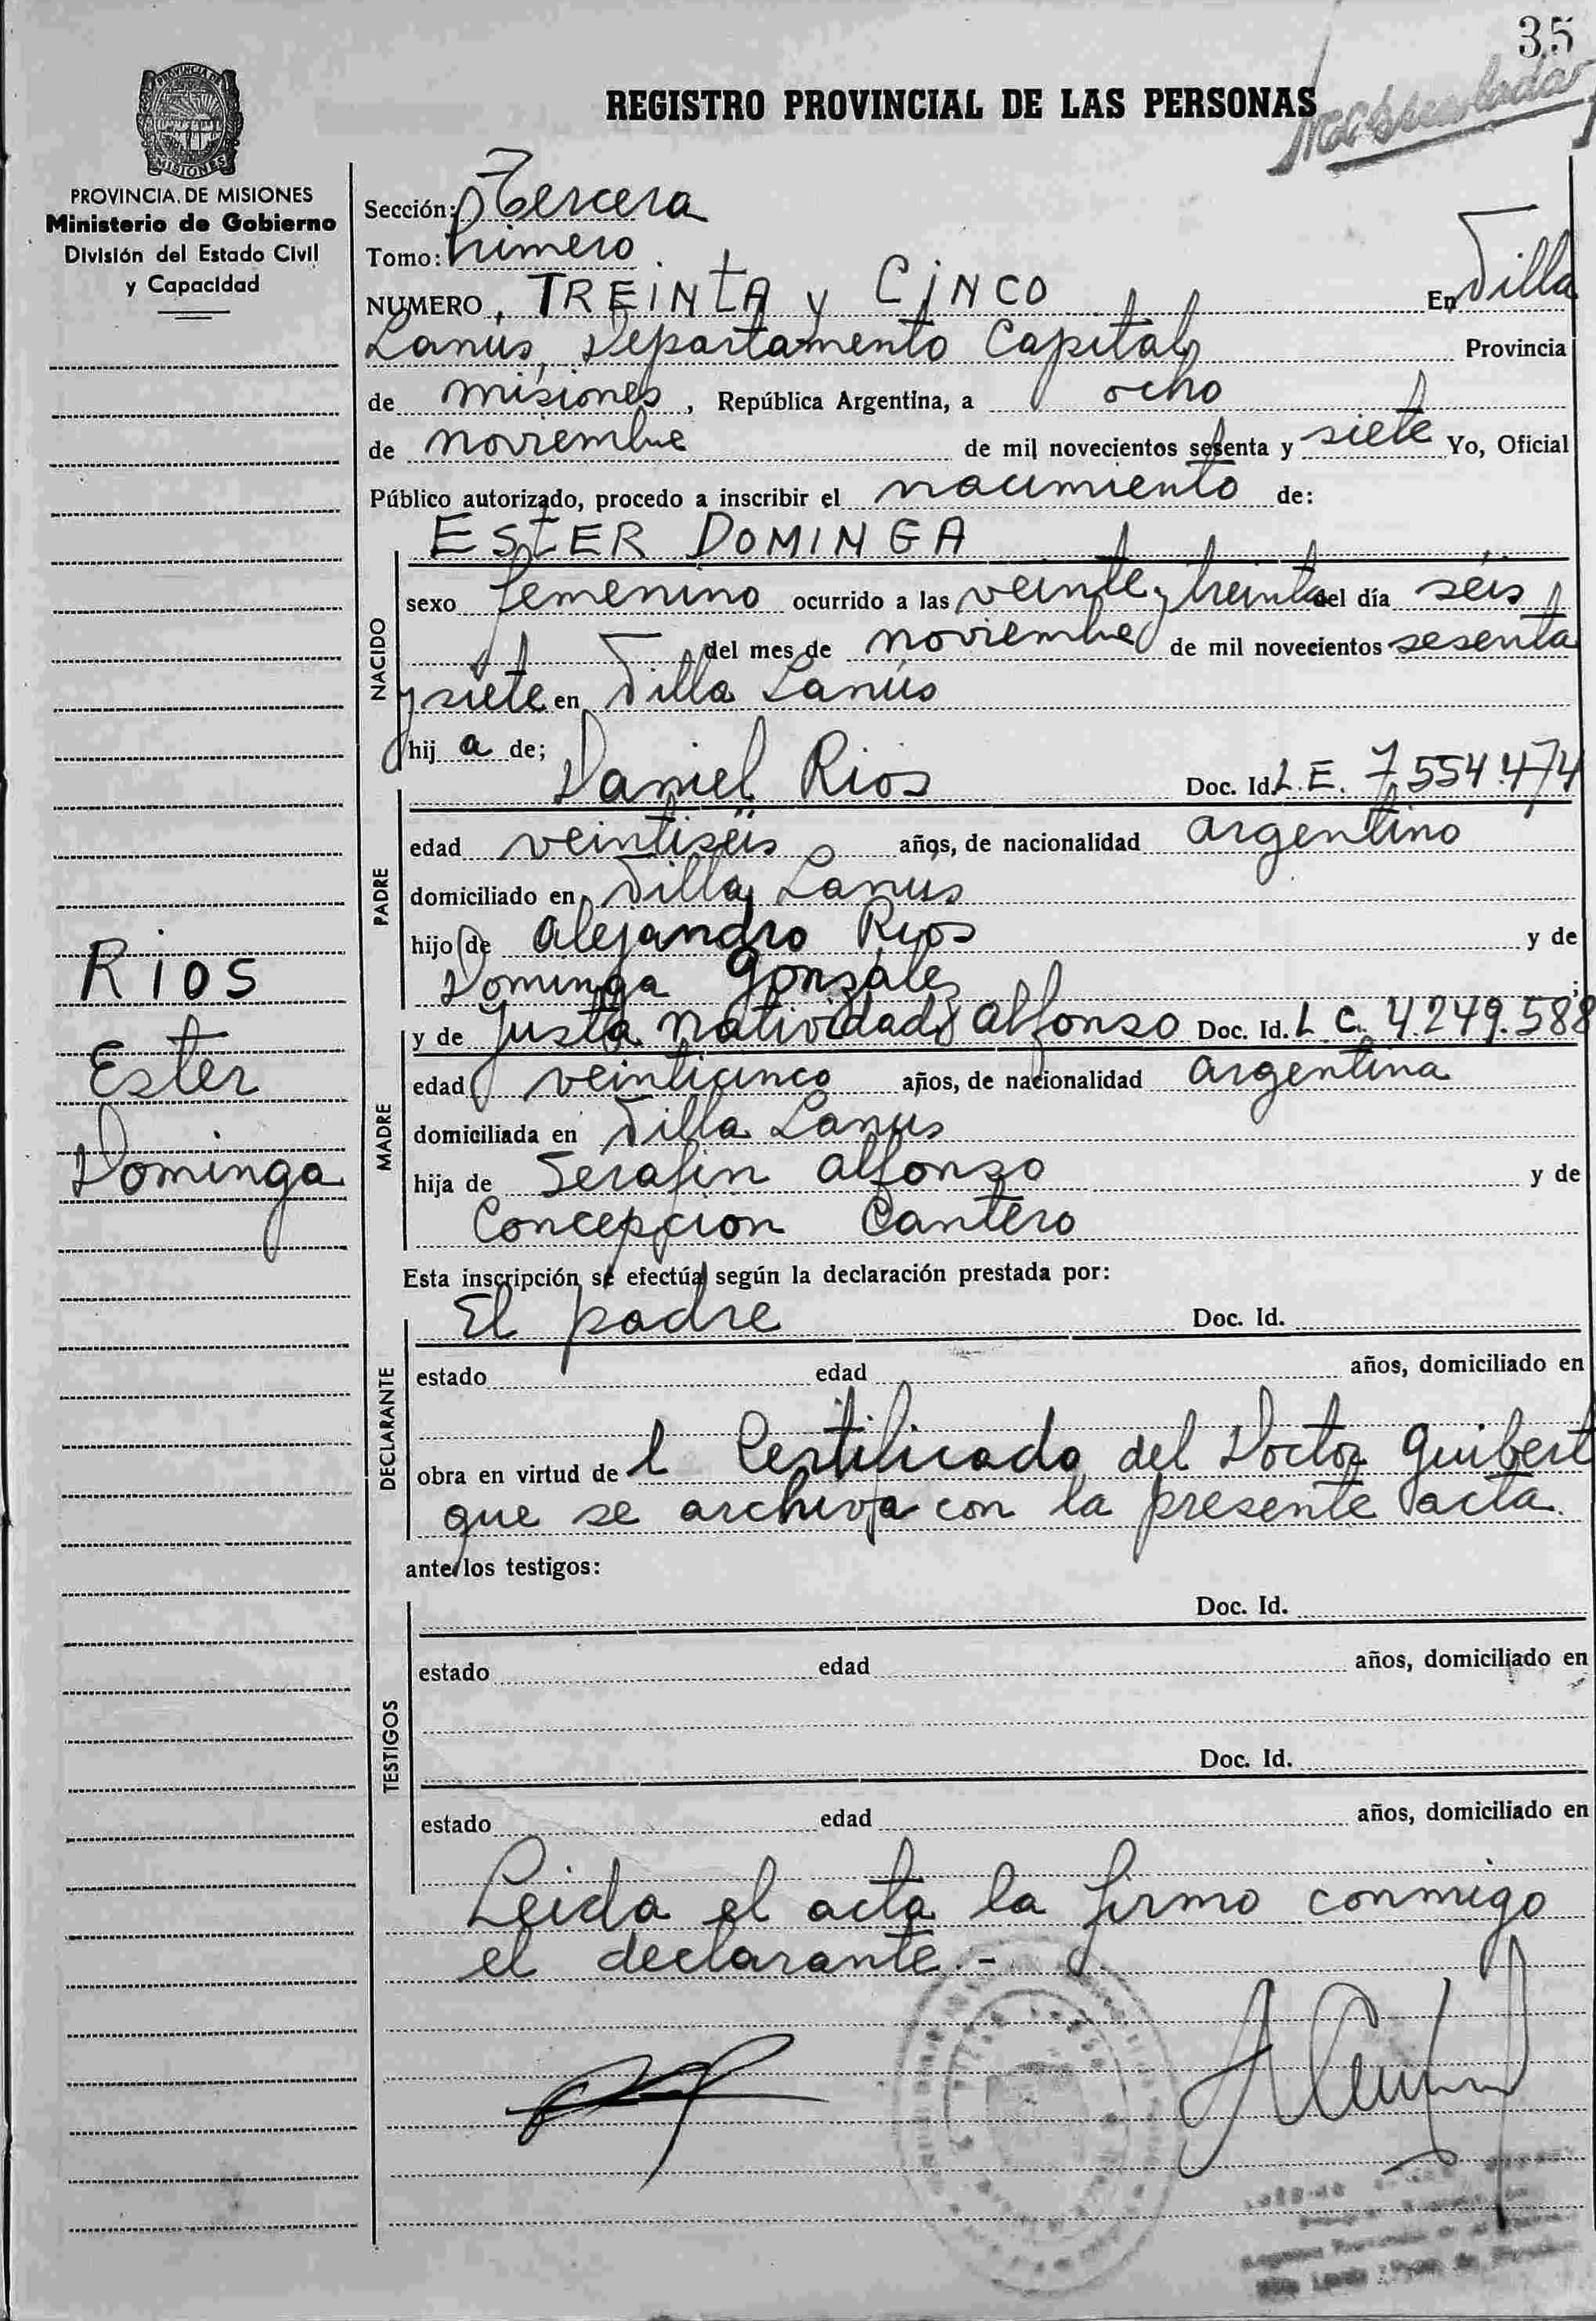 35
REGISTRO PROVINCIAL DE LAS PERSONAS
PROVINCIA DE MISIONES
MISIONES
PROVINCIA DE MISIONES
Ministerio de Gobierno
División del Estado Civil
y Capacidad
Sección: Tercera
Tomo: Primero
NUMERO, TREINTA y CINCO En Villa
Lanús, Departamento Capital Provincia
de misiones, República Argentina, a ocho
de noviembre de mil novecientos sesenta y siete Yo, Oficial
Público autorizado, procedo a inscribir el nacimiento de:
ESTER DOMINGA
NACIDO
sexo femenino ocurrido a las veinte y treinta del día séis
del mes de noviembre de mil novecientos sesenta
y siete en Villa Lanús
hij a de;
Daniel Rios Doc. Id. L.E. 7.554.474
PADRE
edad veintiséis años, de nacionalidad argentino
domiciliado en Villa Lanús
hijo de Alejandro Rios y de
Dominga Gonzáles ;
y de Justa Natividad Alfonso Doc. Id. L C. 4.249.588
MADRE
edad veinticinco años, de nacionalidad argentina
domiciliada en Villa Lanus
hija de Serafin Alfonso y de
Concepcion Cantero
RIOS
Ester
Dominga
Esta inscripción se efectúa según la declaración prestada por:
El padre Doc. Id.
DECLARANTE
estado edad años, domiciliado en
obra en virtud de l Certificado del Doctor Guibert
que se archiva con la presente acta.
ante los testigos:
TESTIGOS
Doc. Id.
estado edad años, domiciliado en
Doc. Id.
estado edad años, domiciliado en
Leida el acta la firmo conmigo
el declarante.-